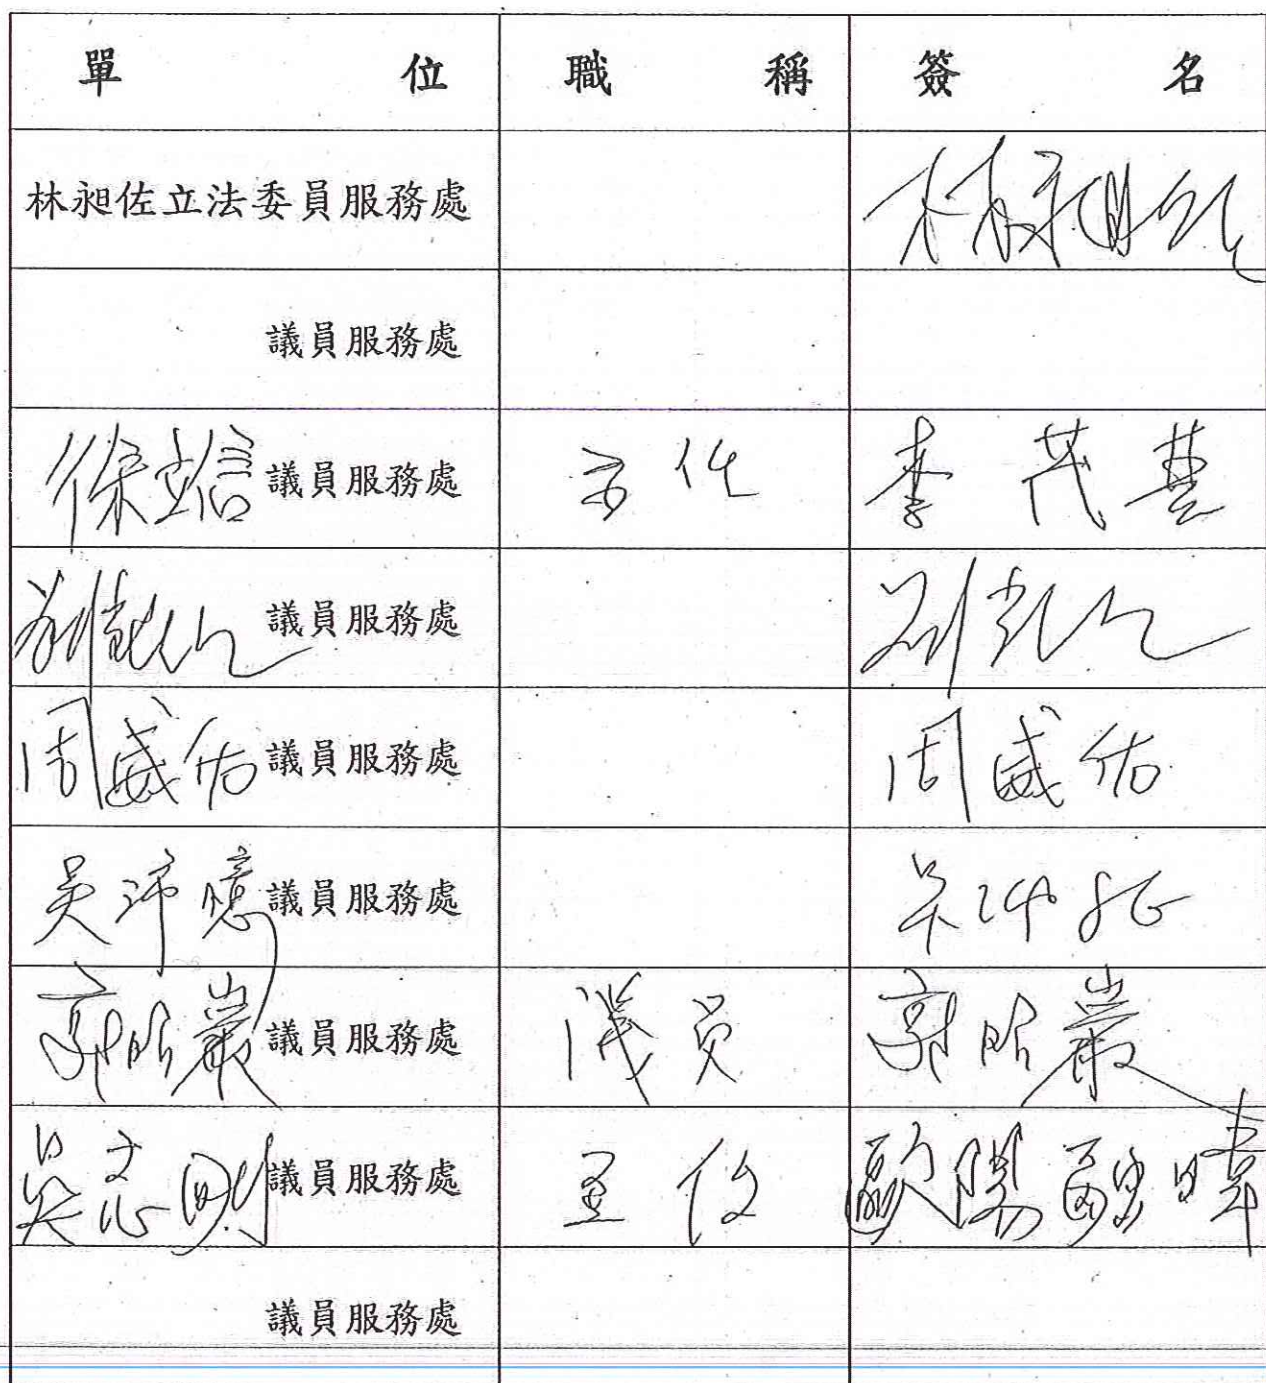 單位 職稱 簽名
林昶佐立法委員服務處 林昶佐
議員服務處
徐立信 議員服務處 主任 李茂豐
劉耀仁 議員服務處 劉耀仁
周威佑 議員服務處 周威佑
吳沛憶 議員服務處 吳沛憶
郭昭巖 議員服務處 議員 郭昭巖
吳志剛 議員服務處 主任 歐陽
議員服務處